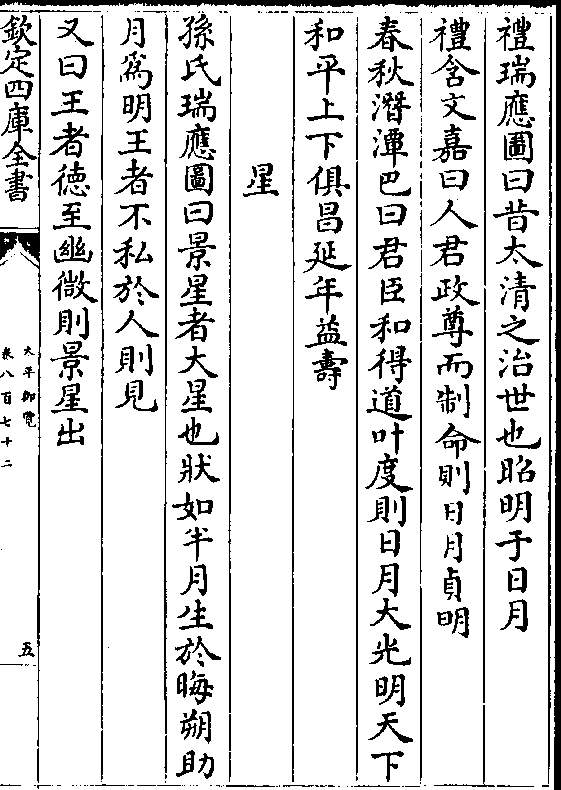 禮瑞應圖曰昔太清之治世也昭明于日月
禮含文嘉曰人君政尊而制命則日月貞明
春秋潛潭巴曰君臣和得道叶度則日月大光明天下
和平上下俱昌延年益壽
星
孫氏瑞應圖曰景星者大星也狀如半月生於晦朔助
月為明王者不私於人則見
又曰王者德至幽微則景星出
欽定四庫全書
太平御覽
卷八百七十二
五